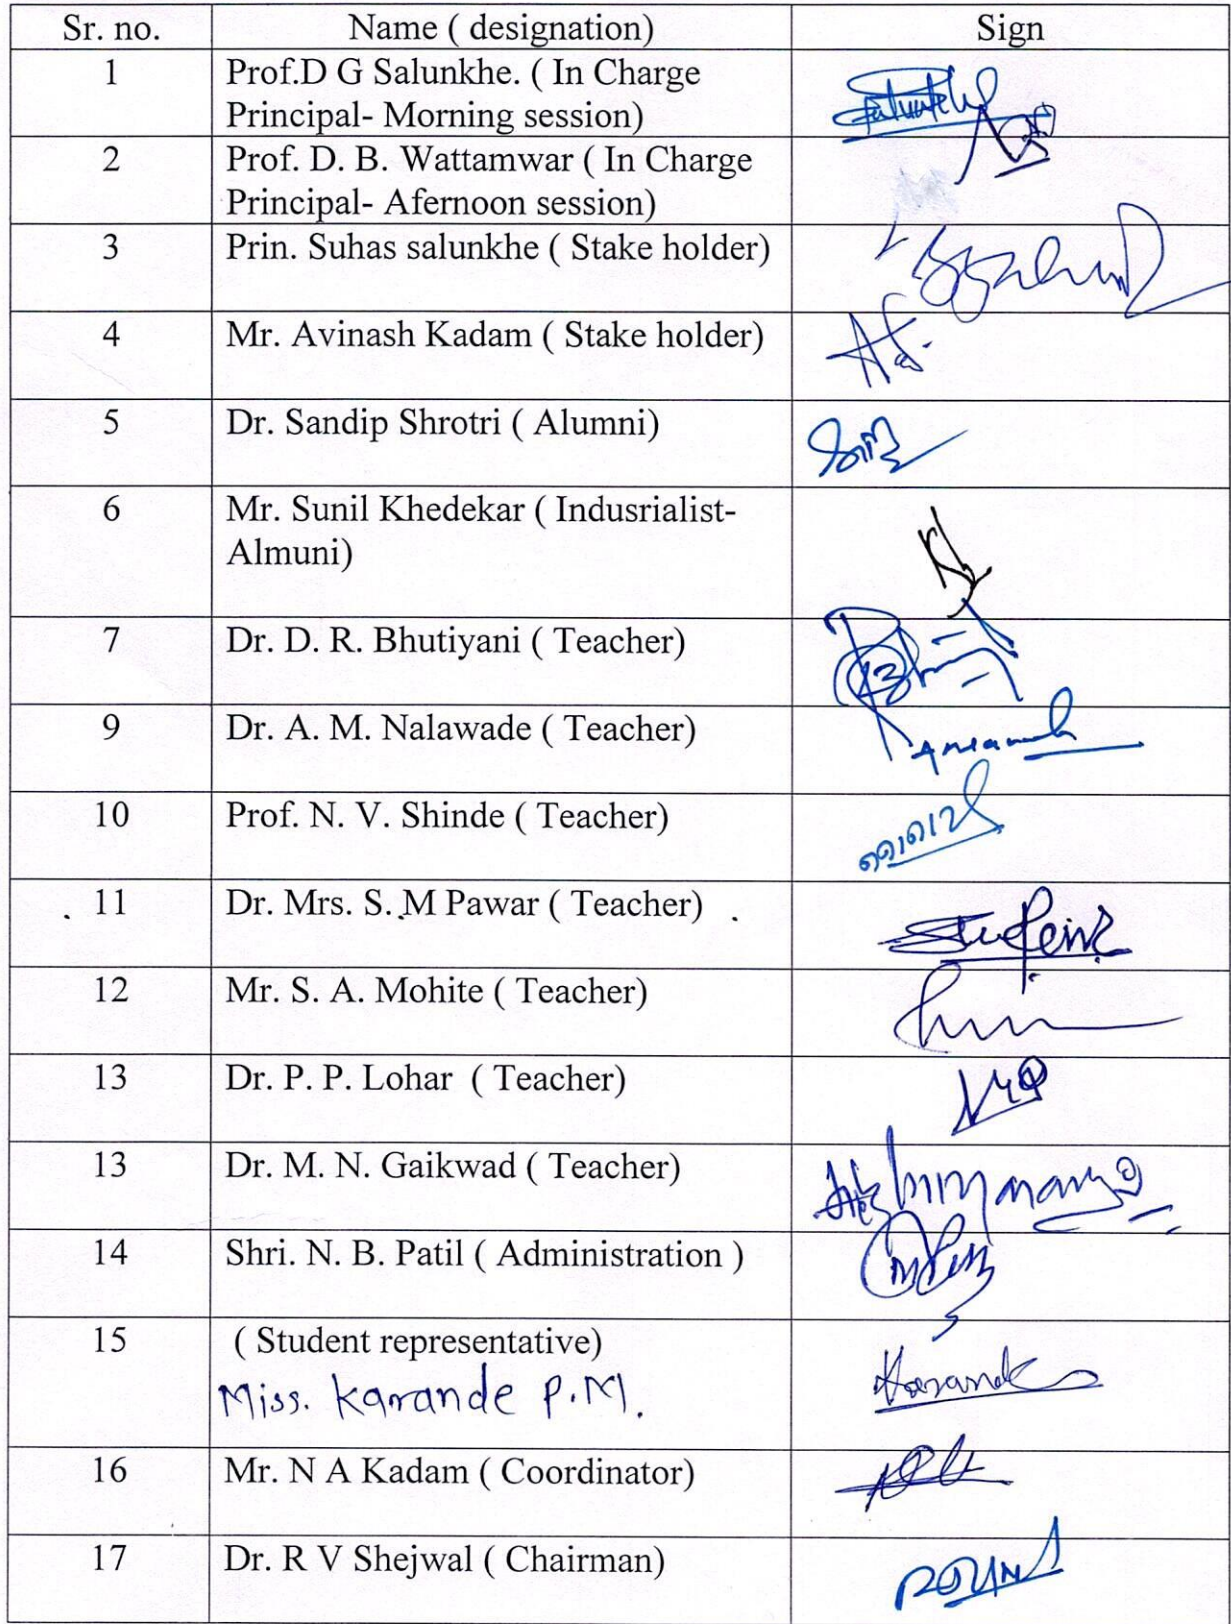 Sr. no. Name ( designation) Sign
1 Prof.D G Salunkhe. ( In Charge
Principal- Morning session)
2 Prof. D. B. Wattamwar ( In Charge
Principal- Afernoon session)
3 Prin. Suhas salunkhe ( Stake holder)
4 Mr. Avinash Kadam ( Stake holder)
5 Dr. Sandip Shrotri ( Alumni)
6 Mr. Sunil Khedekar ( Indusrialist-
Almuni)
7 Dr. D. R. Bhutiyani ( Teacher)
9 Dr. A. M. Nalawade ( Teacher)
10 Prof. N. V. Shinde ( Teacher)
11 Dr. Mrs. S. M Pawar ( Teacher)
12 Mr. S. A. Mohite ( Teacher)
13 Dr. P. P. Lohar ( Teacher)
13 Dr. M. N. Gaikwad ( Teacher)
14 Shri. N. B. Patil ( Administration )
15 ( Student representative)
Miss. Karande P.M.
16 Mr. N A Kadam ( Coordinator)
17 Dr. R V Shejwal ( Chairman)